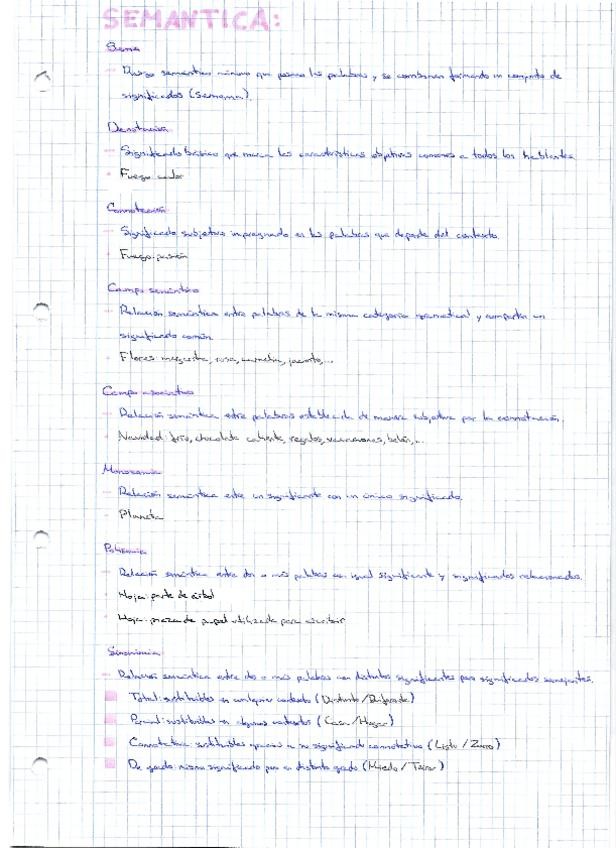 SEMANTICA:
Sema
Rasgo semántico mínimo que poseen las palabras y se combinan formando un conjunto de
significados (Semema).
Denotación
Significado básico que marca las características objetivas comunes a todos los hablantes
Fuego: calor
Connotación
Significado subjetivo impregnado en las palabras que depende del contexto.
Fuego: pasión
Campo semántico
Relación semántica entre palabras de la misma categoría gramatical y comparten un
significado común.
Flores: margarita, rosa, camelia, jacinto,...
Campo asociativo
Relación semántica entre palabras establecida de manera subjetiva por la connotación.
Navidad: frío, chocolate caliente, regalos, vacaciones, belén,...
Monosemia
Relación semántica entre un significante con un único significado.
Planeta
Polisemia
Relación semántica entre dos o más palabras con igual significante y significados relacionados.
Hoja: parte de árbol
Hoja: pieza de papel utilizada para escribir
Sinonimia
Relación semántica entre dos o más palabras con distintos significantes pero significados semejantes.
Total: sustituibles en cualquier contexto (
Parcial: sustituibles en algunos contextos (Casa / Hogar)
Connotativa: sustituibles gracias a su significado connotativo (Listo / Zorro)
De grado: mismo significado pero en distinto grado (Miedo / Terror)